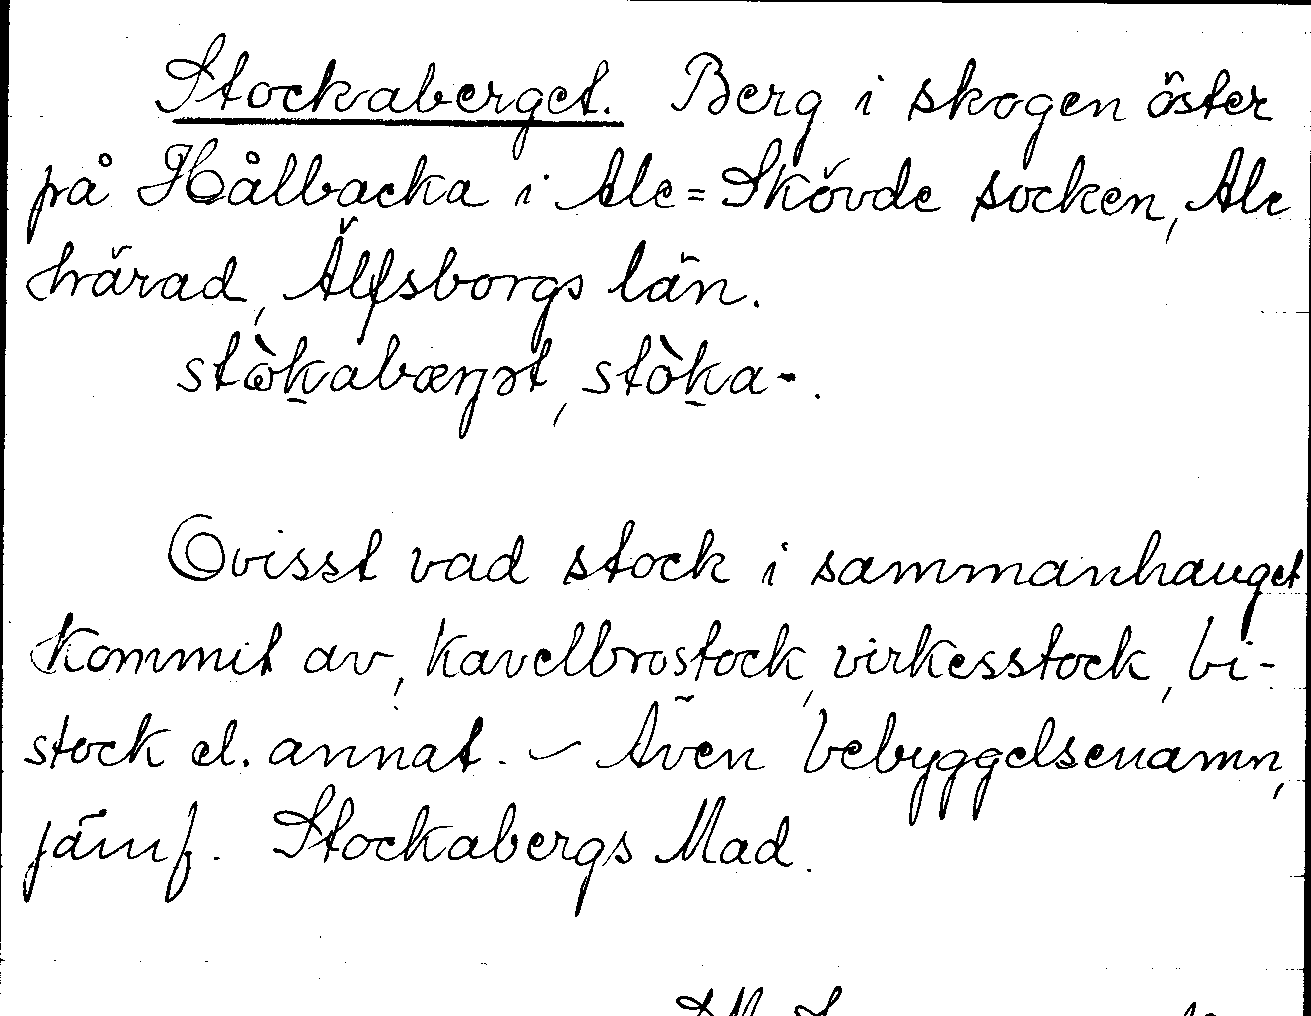 Stockaberget. Berg i skogen öster
på Hålbacka i Ale=Skövde socken, Ale
härad, Älfsborgs län.
stòkabærgət, stòka-.
Ovisst vad stock i sammanhanget
kommit av, kavelbrostock, virkesstock, bi-
stock el. annat. – Även bebyggelsenamn,
jämf. Stockabergs Mad.